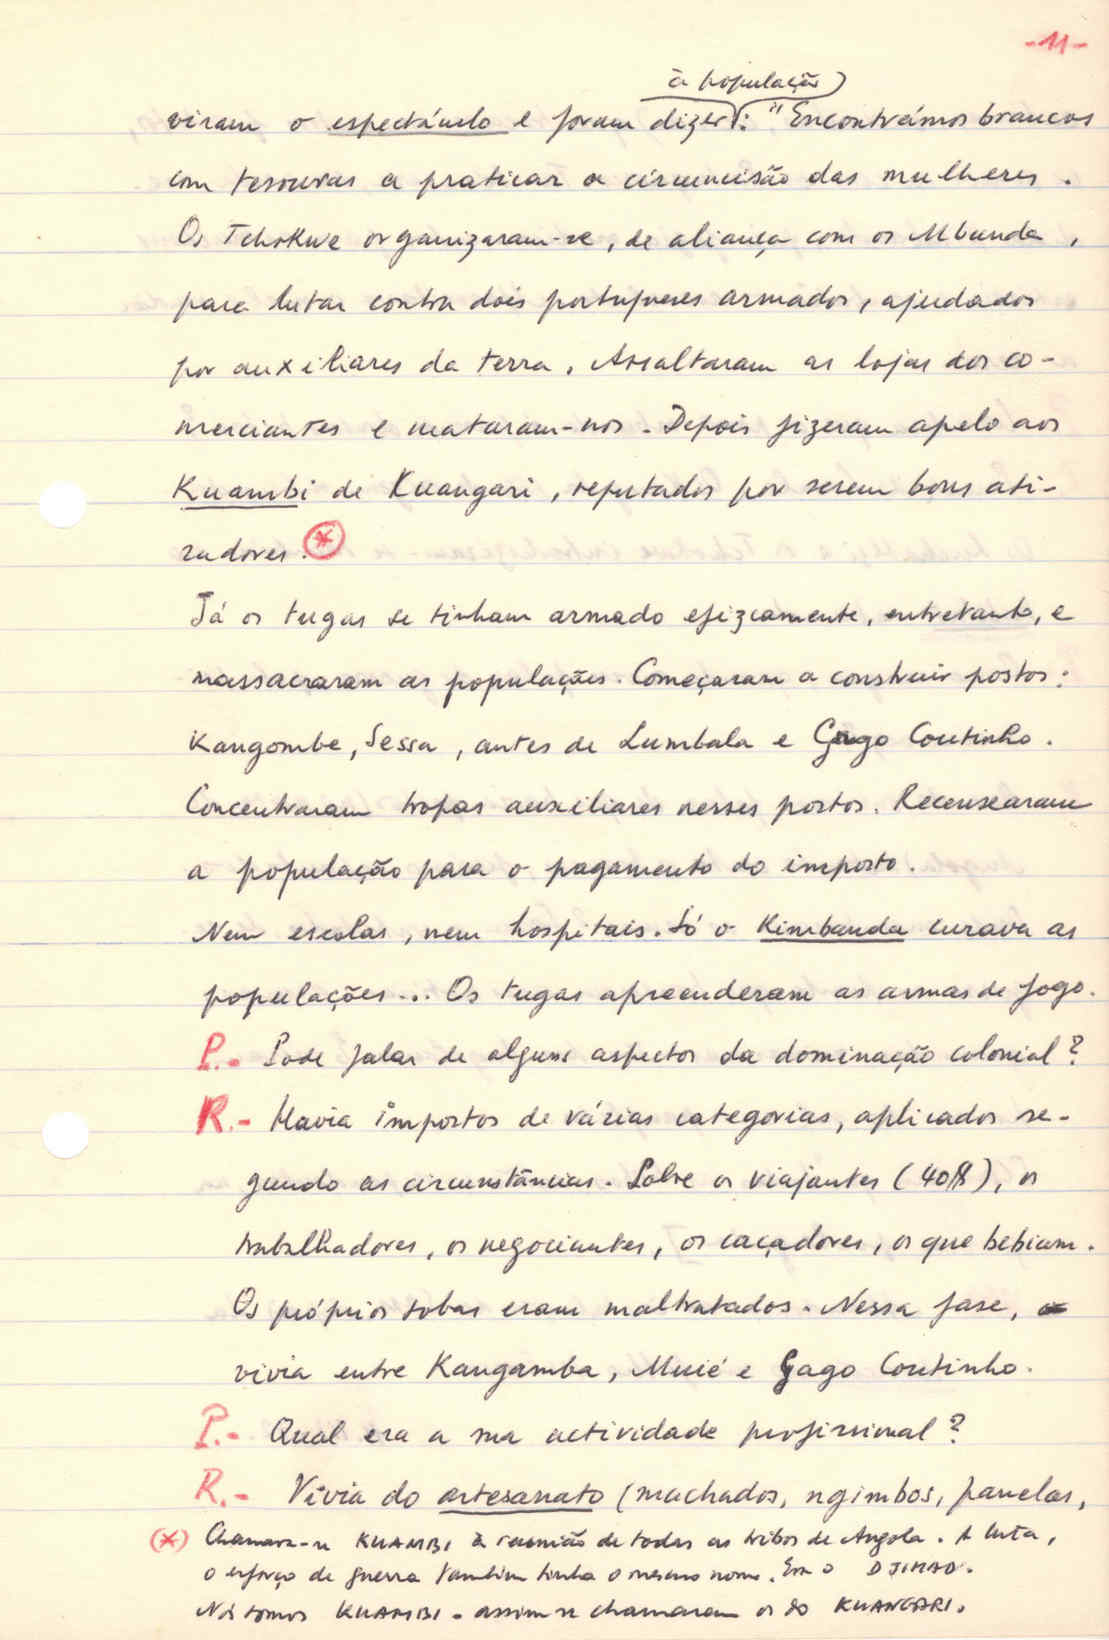 -11-
à população
viram o espectáculo e foram dizer: "Encontrámos brancos
com tesouras a praticar a circuncisão das mulheres.
Os Tchokwe organizaram-se, de aliança com os Mbunda,
para lutar contra dois portugueses armados, ajudados
por auxiliares da terra. Assaltaram as lojas dos co-
merciantes e mataram-nos. Depois fizeram apelo aos
Kuambi de Kuangari, reputados por serem bons ati-
radores. (*)
Já os tugas se tinham armado eficzamente, entretanto, e
massacraram as populações. Começaram a construir postos:
Kangombe, Sessa, antes de Lumbala e Gago Coutinho.
Concentraram tropas auxiliares nesses postos. Recensearam
a população para o pagamento do imposto.
Nem escolas, nem hospitais. Só o Kimbanda curava as
populações... Os tugas apreenderam as armas de fogo.
P.- Pode falar de alguns aspectos da dominação colonial?
R.- Havia impostos de várias categorias, aplicados se-
gundo as circunstâncias. Sobre os viajantes (40$), os
trabalhadores, os negociantes, os caçadores, os que bebiam.
Os próprios sobas eram maltratados. Nessa fase,
vivia entre Kangamba, Muié e Gago Coutinho.
P.- Qual era a sua actividade profissional?
R.- Vivia do artesanato (machados, ngimbos, panelas,
(*) Chamava-se KUAMBI à reunião de todas as tribos de Angola. A luta,
o esforço de guerra também tinha o mesmo nome. Era o DJIHAD.
Nós somos KUAMBI - assim se chamaram os do KUANGARI.